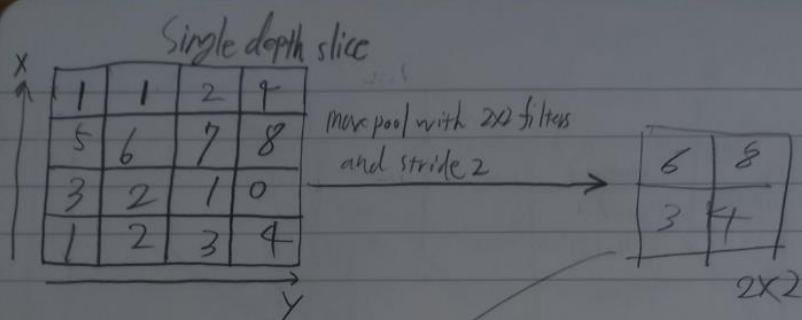 Single depth slice
X
1 1 2 4
5 6 7 8
3 2 1 0
1 2 3 4
Y
max pool with 2x2 filters
and stride 2
6 8
3 4
2x2